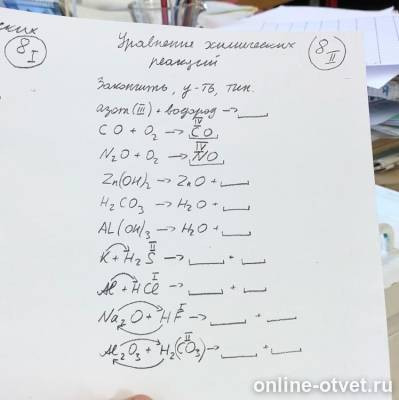 ских
8 I
Уравнение химических
реакций
8 II
Закончить, у-ть, тип.
азот (III) + водород → ___
CO + O₂ → C^IV O
N₂O + O₂ → N^IV O
Zn(OH)₂ → ZnO + ___
H₂CO₃ → H₂O + ___
AL(OH)₃ → H₂O + ___
K + H₂S^II → ___ + ___
Al + HCl^I → ___ + ___
Na₂O + HF^I → ___ + ___
Al₂O₃ + H₂(CO₃)^II → ___ + ___
online-otvet.ru